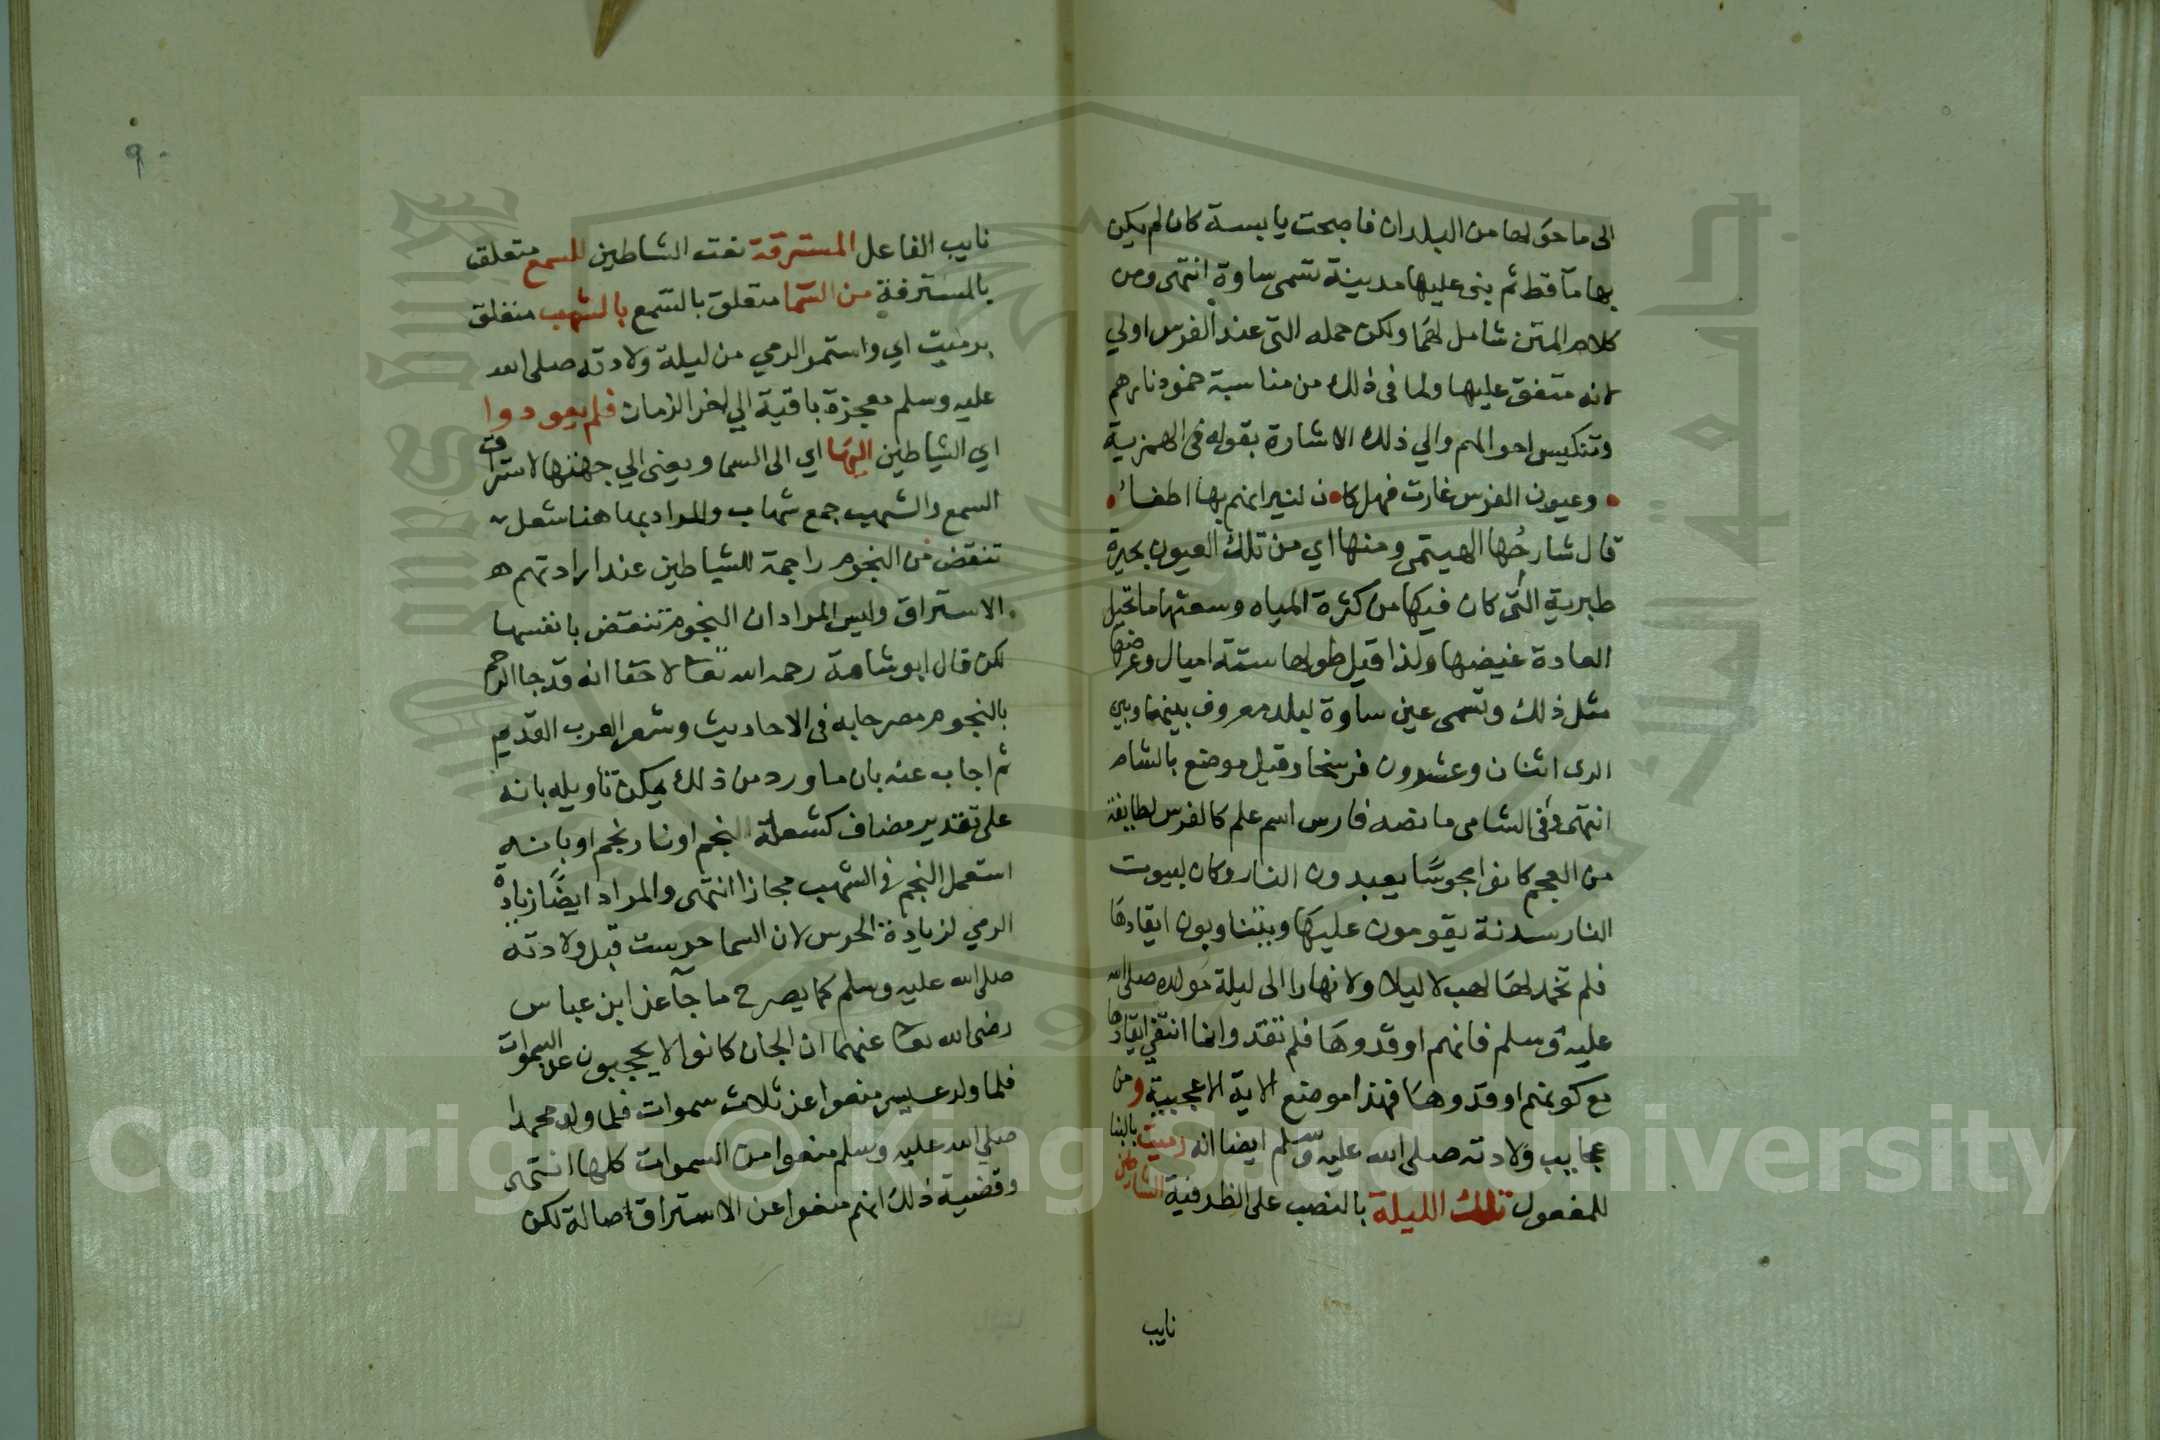 الى ما حولها من البلدان فاصبحت يابسة كان لم يكن
بها مآ قط ثم بنى عليها مدينة تسمى ساوة انتهى ومن
كلام المتن شامل لهما ولكن حمله التى عند الفرس اولي
لانه متفق عليها ولما فى ذلك من مناسبة خمود نارهم
وتنكيس احوالهم والي ذلك الاشارة بقوله فى الهمزية
وعيون الفرس غارت فهل كا ن لنيرانهم بها اطفاء
قال شارحها الهيتمى ومنها اي من تلك العيون بحيرة
طبرية التى كان فيها من كثرة المياه وسعتها ما تحيل
العادة غيضها ولذا قيل طولها ستة اميال وعرضها
مثل ذلك وتسمى عين ساوة لبلد معروف بينها وبين
الرى اثنان وعشرون فرسخا وقيل موضع بالشام
انتهى وفى الشامى ما نصه فارس اسم علم كالفرس لطايفة
من العجم كانوا مجوسًا يعبدون النار وكان لبيوت
النار سدنة يقومون عليها ويتناوبون ايقادها
فلم تخمد لها لهب لا ليلا ولا نهارا الى ليلة مولده صلى الله
عليه وسلم فانهم اوقدوها فلم تقد وانما انتفي ايقادها
مع كونهم اوقدوها فهذا موضع الاية الاعجيبة ومن
عجايب ولادته صلى الله عليه وسلم ايضا انه رميت بالبنا
للمفعول تلك الليلة بالنصب على الظرفية الشياطين
نايب
٩٠
نايب الفاعل المسترقة نعت الشياطين للسمع متعلق
بالمسترقة من السما متعلق بالسمع بالشهب متعلق
برميت اي واستمر الرمي من ليلة ولادته صلى الله
عليه وسلم معجزة باقية الي اخر الزمان فلم يعودوا
اي الشياطين اليها اي الى السما ويعنى الي جهتها لاستراق
السمع والشهب جمع شهاب والمراد بها هنا شعل
تنقض من النجوم راجمة للشياطين عند ارادتهم
الاستراق وليس المراد ان النجوم تنقض بانفسها
لكن قال ابو شامة رحمه الله تعا لاحقا انه قد جا الرجم
بالنجوم مصرحا به فى الاحاديث وشعر العرب القديم
ثم اجاب عنه بان ما ورد من ذلك يمكن تاويله بانه
على تقدير مضاف كشعلة النجم او نار نجم او بانه
استعمل النجم في الشهب مجازا انتهى والمراد ايضًا زيادة
الرمي لزيادة الحرس لان السما حرست قبل ولادته
صلى الله عليه وسلم كما يصرح ما جآ عن ابن عباس
رضى الله تعا عنهما ان الجان كانوا لا يحجبون عن السموات
فلما ولد عيسى منعوا عن ثلاث سموات فلما ولد محمدا
صلي الله عليه وسلم منعوا من السموات كلها انتهى
وقضية ذلك انهم منعوا عن الاستراق اصالة لكن
Copyright © King Saud University